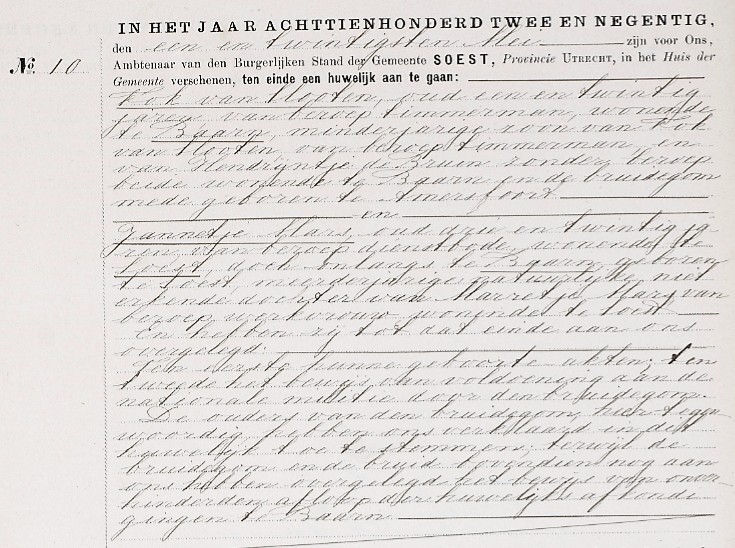 IN HET JAAR ACHTTIENHONDERD TWEE EN NEGENTIG,
den een en twintigsten Mei zijn voor Ons,
Ambtenaar van den Burgerlijken Stand der Gemeente SOEST, Provincie UTRECHT, in het Huis der
No. 10
Gemeente verschenen, ten einde een huwelijk aan te gaan:
Kok van Klooten, oud een en twintig
jaren, van beroep timmerman, wonende
te Baarn, minderjarige zoon van Kok
van Klooten, van beroep timmerman, en
van Hendrijntje de Bruin zonder beroep
beide wonende te Baarn en de bruidegom
mede geboren te Amersfoort
en
Jannetje Mars, oud drie en twintig ja-
ren, van beroep dienstbode, wonende te
Soest, doch onlangs te Baarn, geboren
te Soest, meerderjarige natuurlijke, niet
erkende dochter van Marretje Mars, van
beroep werkvrouw, wonende te Soest
En hebben zij tot dat einde aan ons
overgelegd:
Ten eerste hunne geboorte akten; ten
tweede het bewijs van voldoening aan de
nationale militie door den bruidegom.
De ouders van den bruidegom, hier tegen-
woordig, hebben ons verklaard in dit
huwelijk toe te stemmen, terwijl de
bruidegom en de bruid bovendien nog aan
ons hebben overgelegd het bewijs van onver-
hinderden afloop der huwelijks afkondi-
gingen te Baarn